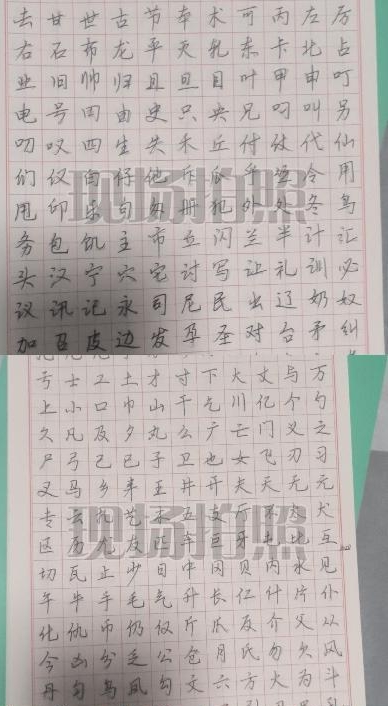 去甘世古节本术可丙左厉
右石布龙平灭轧东卡北占
业旧帅归且旦目叶甲申叮
电号田由史只央兄叼叫另
叨叹四生失禾丘付仗代仙
们仪白仔他斥瓜乎丛令用
甩印乐句匆册犯外处冬鸟
务包饥主市立闪兰半计汇
头汉宁穴它讨写让礼训必
议讯记永司尼民出辽奶奴
加召皮边发孕圣对台矛纠
现场拍照
亏士工土才寸下大丈与万
上小口巾山千乞川亿个勺
久凡及夕丸么广亡门义之
尸弓己已子卫也女飞刃习
叉马乡丰王井开夫天无元
专云扎艺木五支厅不太犬
区历尤友匹车巨牙屯比互
切瓦止少日中冈贝内水见
午牛手毛气升长仁什片仆
化仇币仍仅斤爪反介父从
今凶分乏公仓月氏勿欠风
丹匀乌凤勾文六方火为斗
现场拍照